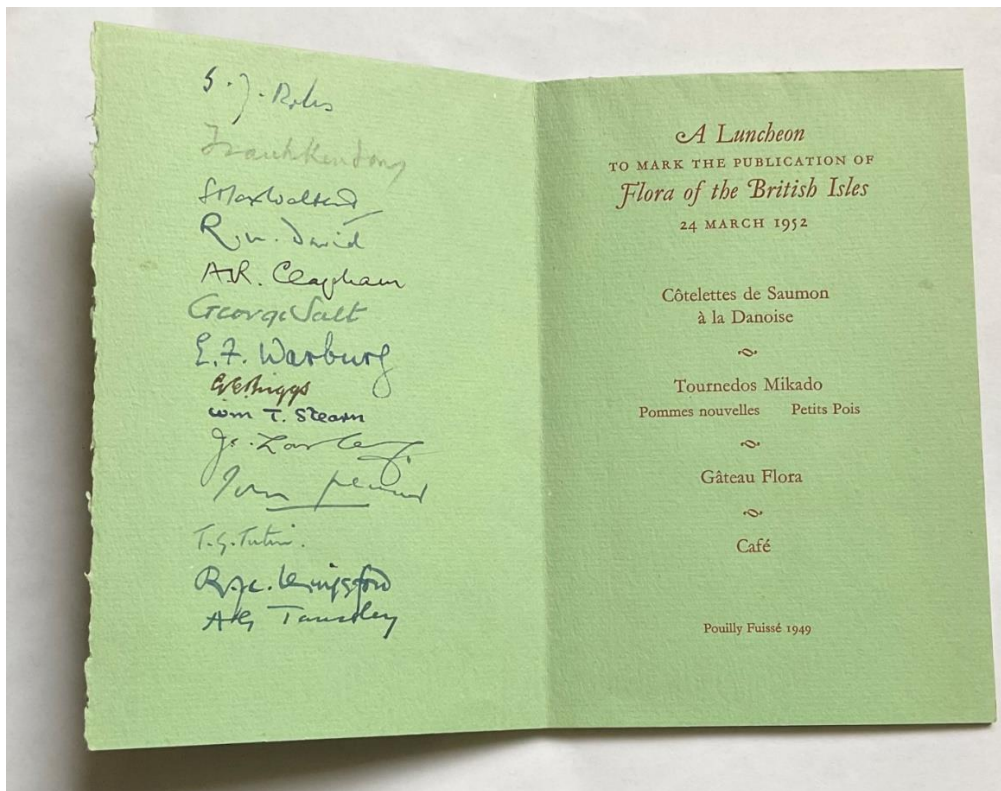 S. J. Roles
Frank Kendon
S Max Walters
R. W. David
A.R. Clapham
George Salt
E. F. Warburg
G E Briggs
Wm T. Stearn
T. G. Tutin.
R. J. L. Kingsford
AG Tansley
A Luncheon
TO MARK THE PUBLICATION OF
Flora of the British Isles
24 MARCH 1952
Côtelettes de Saumon
à la Danoise
Tournedos Mikado
Pommes nouvelles Petits Pois
Gâteau Flora
Café
Pouilly Fuissé 1949